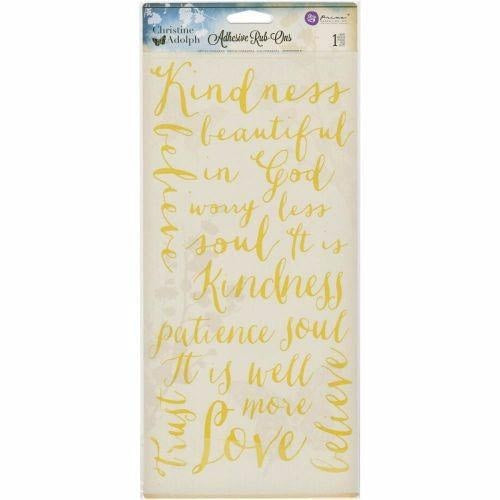 Christine
Adolph
Adhesive Rub-Ons
Prima
1
Kindness
believe
beautiful
in God
worry less
soul It is
Kindness
patience soul
It is well
Trust
more
believe
Love